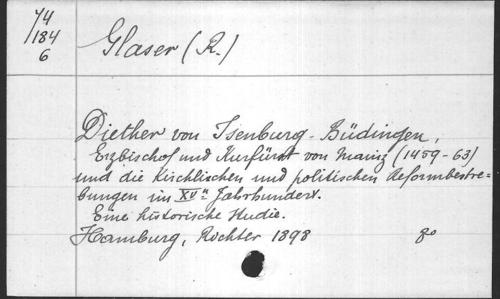 74
184
6
Glaser (R.)
Diether von Isenburg-Büdingen,
Erzbischof und Kurfürst von Mainz (1459-63)
und die kirchlichen und politischen Reformbestre=
bungen im XV" Jahrhundert.
Eine historische Studie.
Hamburg, Richter 1898 8°